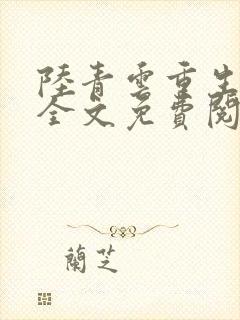 陸青雲重生
全文免費閱
蘭芝